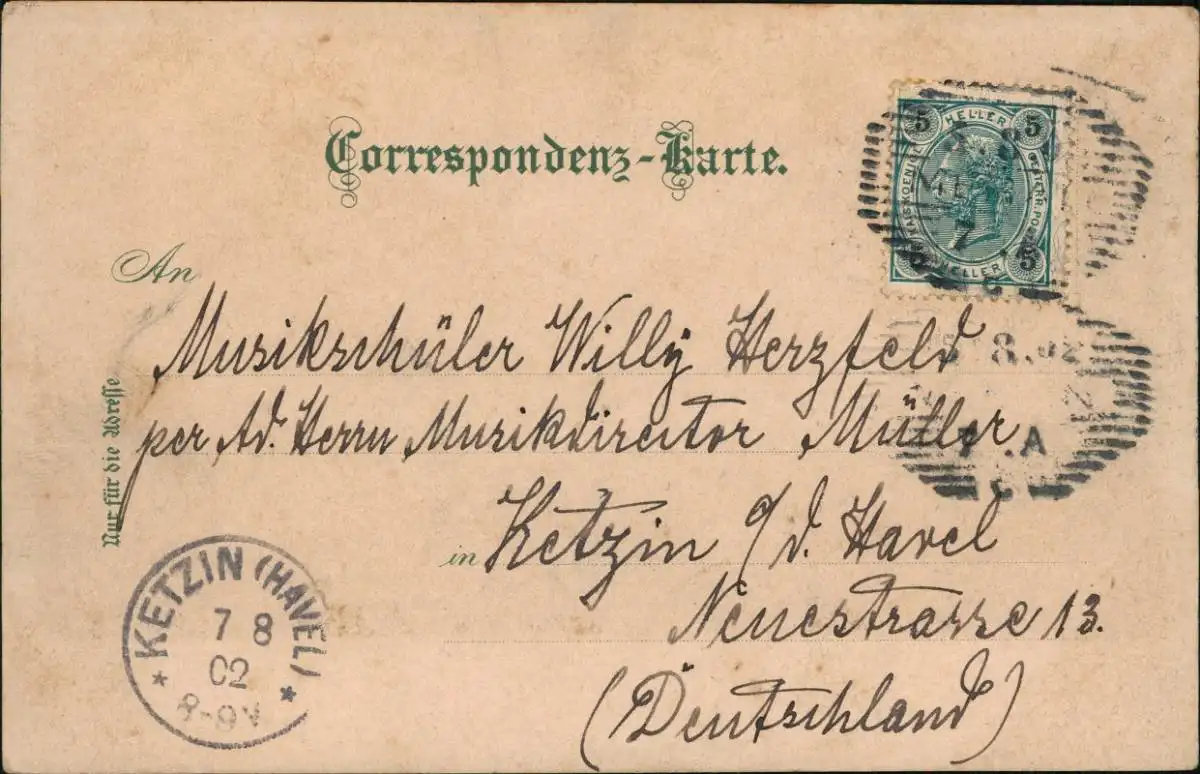 Correspondenz-Karte.
5 HELLER 5
KAIS. KOENIGL. OESTERR. POST
5 HELLER 5
An
Musikschüler Willy Herzfeld
per Ad. Herrn Musikdirector Müller
in Ketzin a/d. Havel
Neuestrasse 13.
(Deutschland)
Nur für die Adresse
8.02
KETZIN (HAVEL)
7 8
02
8-9V